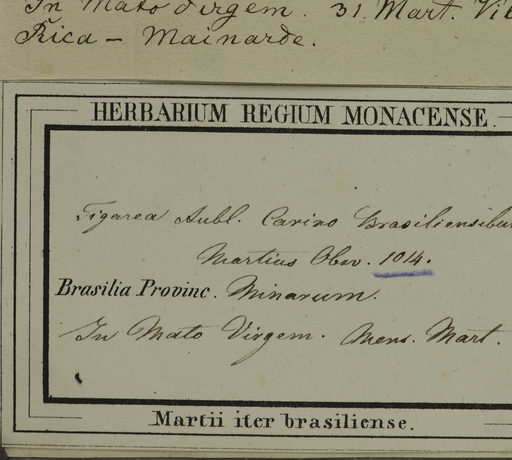 In Mato Virgem. 31. Mart.
Rica - Mainarde.
HERBARIUM REGIUM MONACENSE.
Tigarea Aubl. Brasiliensibus
Martius Obs. 1014.
Brasilia Provinc. Minarum.
In Mato Virgem. Mens. Mart.
Martii iter brasiliense.